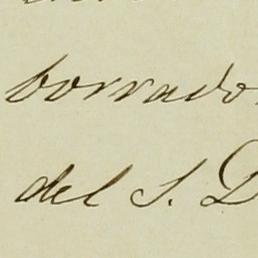 borrado
del S. D